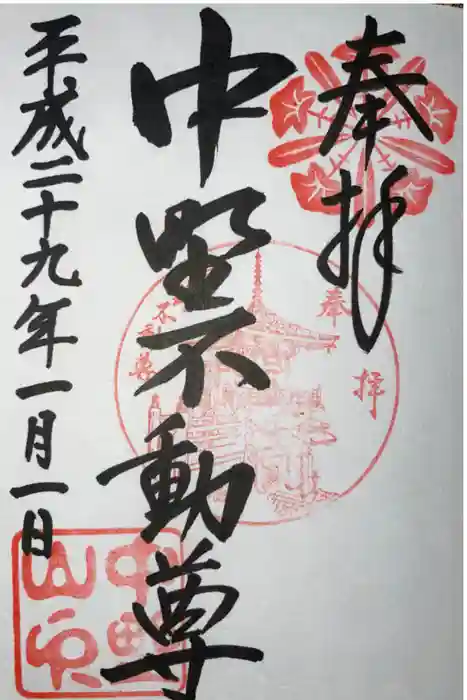 奉拝
奉拝
中野不動尊
不動尊
平成二十九年一月一日